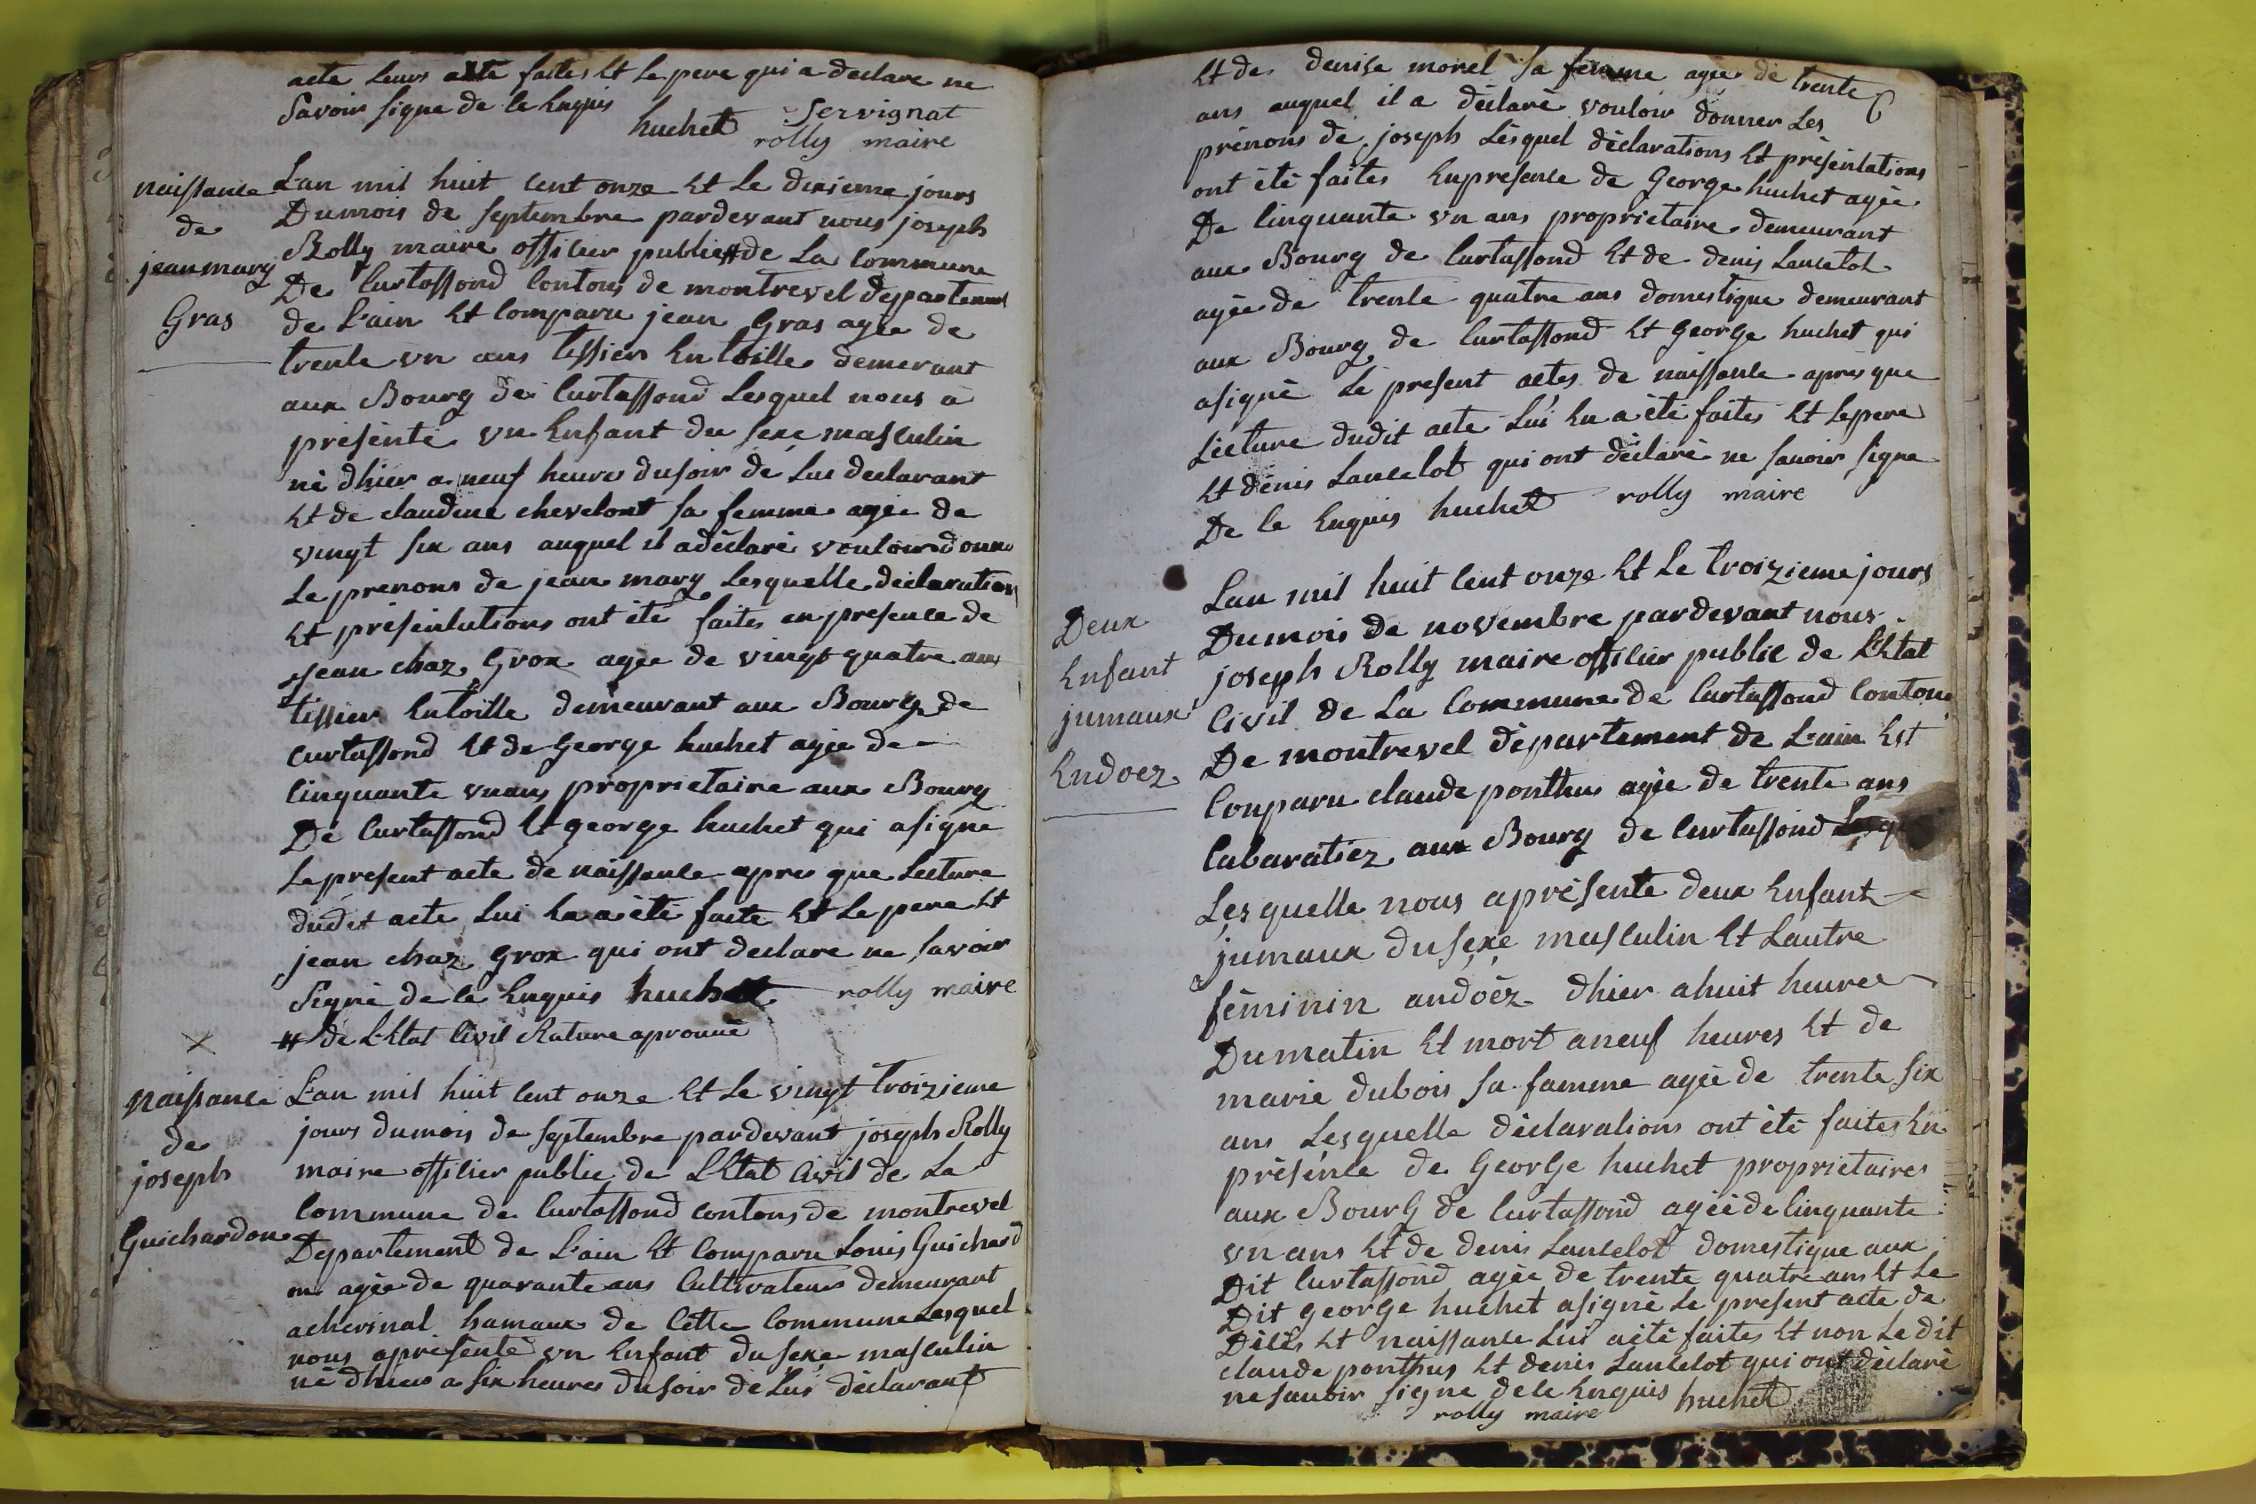 acte leurs acte faites Et le pere qui a declare ne
Savoir signe de le Enquis
huchet Servignat
rolly maire
naissance
de
jean mary
Gras
L'an mil huit cent onze Et Le dixieme jours
Du mois de septembre pardevant nous joseph
Rolly maire officier public # de La commune
De Curtassond Contons de montrevel departement
de L'ain Et Comparu jean Gras agée de
trente un ans tissier En toille demerant
aux Bourg de Curtassond Lesquel nous à
présenté un Enfant du sexe masculin
né dhier a neuf heures du soir de Lui declarant
Et de claudine chevelont sa femme agée de
vingt six ans auquel il a déclaré vouloir donne
Le prenons de jean mary Lesquelle déclaration
Et présentations ont été faites en presence de
jean chaz Grox agée de vingt quatre ans
tissier Entoille demeurant aux Bourg de
Curtassond Et de George huchet agée de
Cinquante un ans proprietaire aux Bourg
De Curtassond Et george huchet qui a signé
Le present acte de naissance apres que Lecture
dudit acte Lui En a été faite Et Le pere Et
jean chaz grox qui ont declare ne savoir
Signé de le Enquis huchet rolly maire
# de L'Etat Civil Rature aprouué
naissance
de
joseph
Guichardon
L'an mil huit cent onze Et Le vingt troizieme
jours du mois de septembre pardevant joseph Rolly
maire officier public de L'Etat Civil de La
Commune de Curtassond contons de montrevel
Departement de L'ain Et Comparu Louis Guichard
on agée de quarante ans Cultivateur demeurant
a chevinal hamaux de Cette Commune Lesquel
nous a présenté un Enfant du sexe masculin
né dhier a six heures du soir de Lui déclarant
Et de denise morel sa femme agée de trente
ans auquel il a déclaré vouloir donner Les
prénons de joseph Lesquel déclarations Et présentations
ont été faites En presence de George huchet agée
De Cinquante un ans proprietaire demeurant
aux Bourg de Curtassond Et de denis Lancelot
agée de trente quatre ans domestique demeurant
aux Bourg de Curtassond Et George huchet qui
a signé Le present actes de naissance apres que
Lecture dudit acte Lui En a été faites Et Le pere
Et denis Lancelot qui ont déclaré ne savoir signe
De le Enquis huchet rolly maire
Deux
Enfant
jumaux
Endoez
L'an mil huit Cent onze Et Le troizieme jours
Du mois de novembre pardevant nous
joseph Rolly maire officier public de L'Etat
Civil de La Commune de Curtassond Contons
De montrevel département de L'ain Est
Comparu claude ponthus agée de trente ans
Cabaratiez aux Bourg de Curtassond
Lesquelle nous a présente deux Enfant
jumaux du sexe masculin Et Lautre
féminin andoéz dhier a huit heures
Du matin Et mort a neuf heures Et de
marie dubois sa famme agée de trente six
ans Lesquelle déclarations ont été faites En
présence de George huchet proprietaires
aux BourG de Curtassond agée de Cinquante
un ans Et de denis Lancelot domestique aux
Dit Curtassond agée de trente quatre ans Et Le
Dit george huchet a signé Le present acte de
Décès Et naissance Lui a été faites Et non Le dit
claude ponthus Et denis Lancelot qui ont déclaré
ne sauoir signe de le Enquis huchet
rolly maire